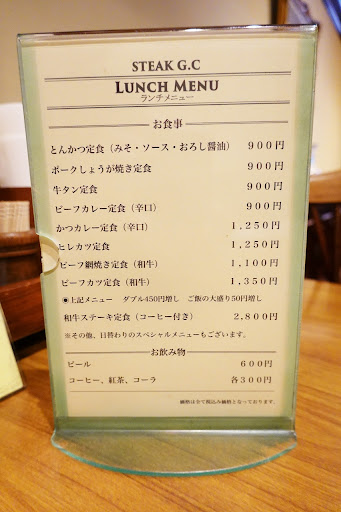 STEAK G.C
LUNCH MENU
ランチメニュー
お食事
とんかつ定食（みそ・ソース・おろし醤油） 900円
ポークしょうが焼き定食 900円
牛タン定食 900円
ビーフカレー定食（辛口） 900円
かつカレー定食（辛口） 1,250円
ヒレカツ定食 1,250円
ビーフ網焼き定食（和牛） 1,100円
ビーフカツ定食（和牛） 1,350円
◉上記メニュー ダブル450円増し ご飯の大盛り50円増し
和牛ステーキ定食（コーヒー付き） 2,800円
※その他、日替わりのスペシャルメニューもございます。
お飲み物
ビール 600円
コーヒー、紅茶、コーラ 各300円
価格は全て税込み価格となっております。